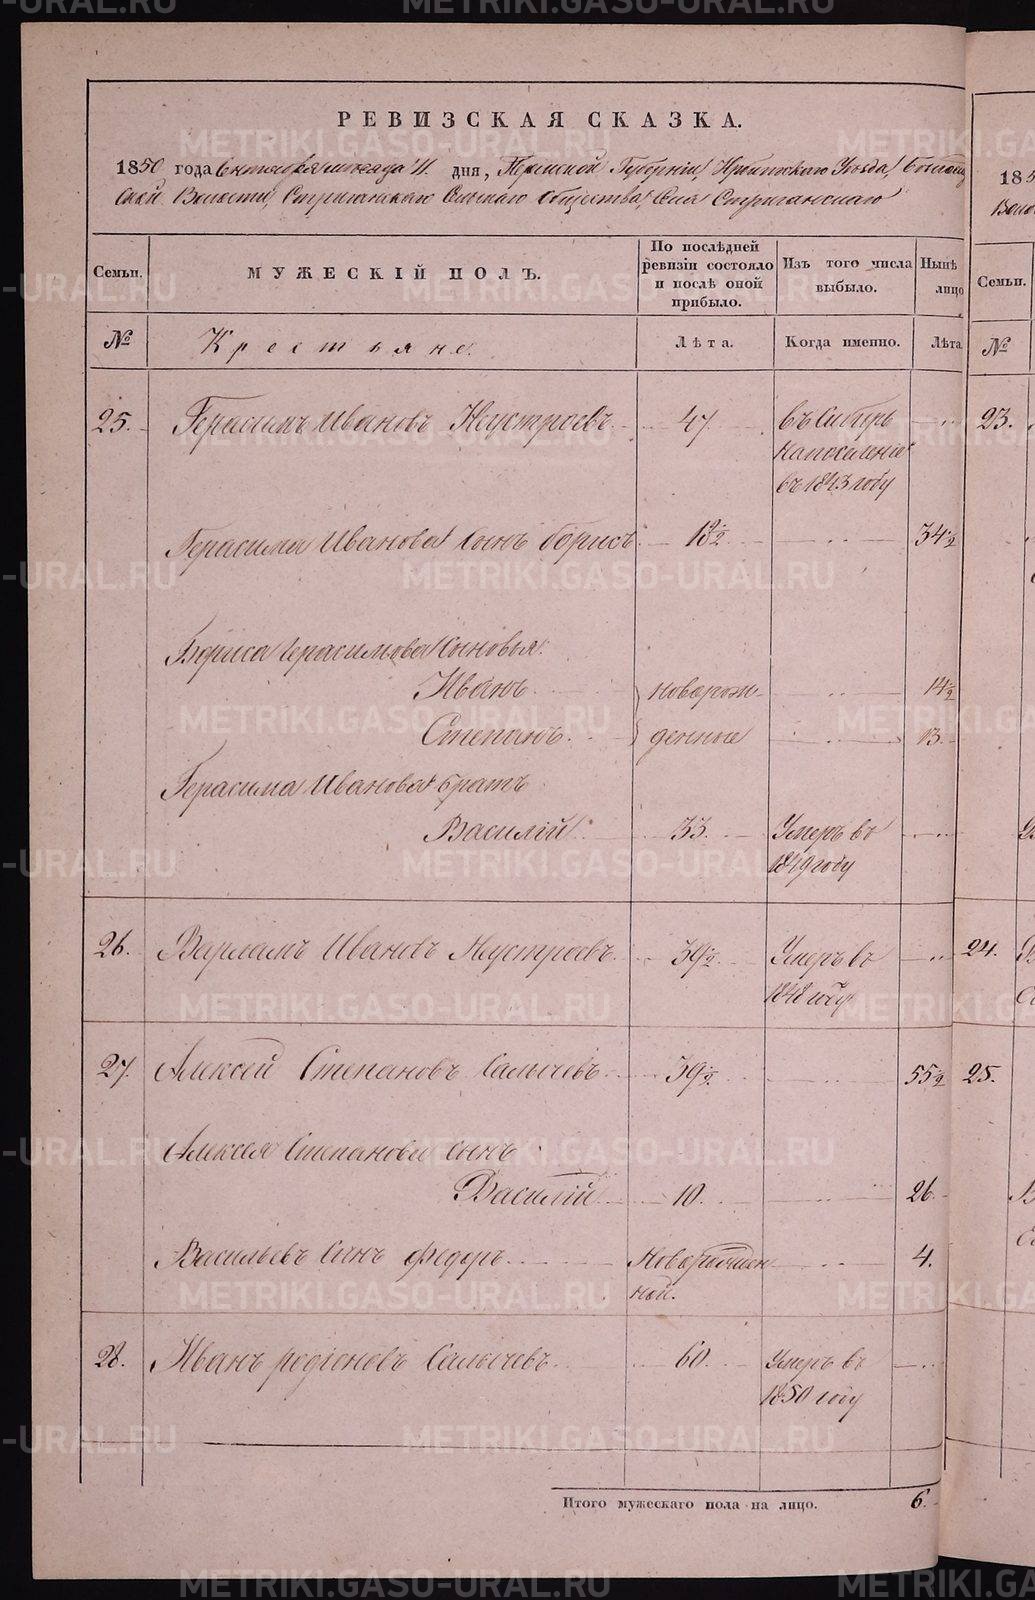 РЕВИЗСКАЯ СКАЗКА.
1850 года Сентября месяца 11. дня, Пермской Губерніи, Ирбитскаго Уѣзда,
ской Волости, Стриганскаго Сельскаго Общества, Села Стриганскаго
Семьи. МУЖЕСКІЙ ПОЛЪ. По послѣдней ревизіи состояло и послѣ оной прибыло. Изъ того числа выбыло. Нынѣ лицо
№ Крестьяне. Лѣта. Когда именно. Лѣта
25. Герасимъ Ивановъ Неустроевъ 47 въ Сибирь
на поселеніе
въ 1843 году
Герасима Иванова сынъ Борисъ 34 1/2
Бориса Герасимова сыновья
Иванъ новорож- 14 1/2
Степанъ. денные 13
Герасима Иванова братъ
Василій 33. Умеръ въ
1849 году
26. Варламъ Ивановъ Неустроевъ 39 1/2 Умеръ въ
1848 году
27. Алексей Степановъ Салычевъ 39 1/2 55 1/2
Алексея Степанова сынъ
Василій 10. 26
Васильевъ сынъ Федоръ Новорожден 4.
ной.
28. Иванъ Родіоновъ Салычевъ 60. Умеръ въ
1850 году
Итого мужескаго пола на лицо. 6.
185
Воло
Семьи.
№
23.
24.
25.
METRIKI.GASO-URAL.RU